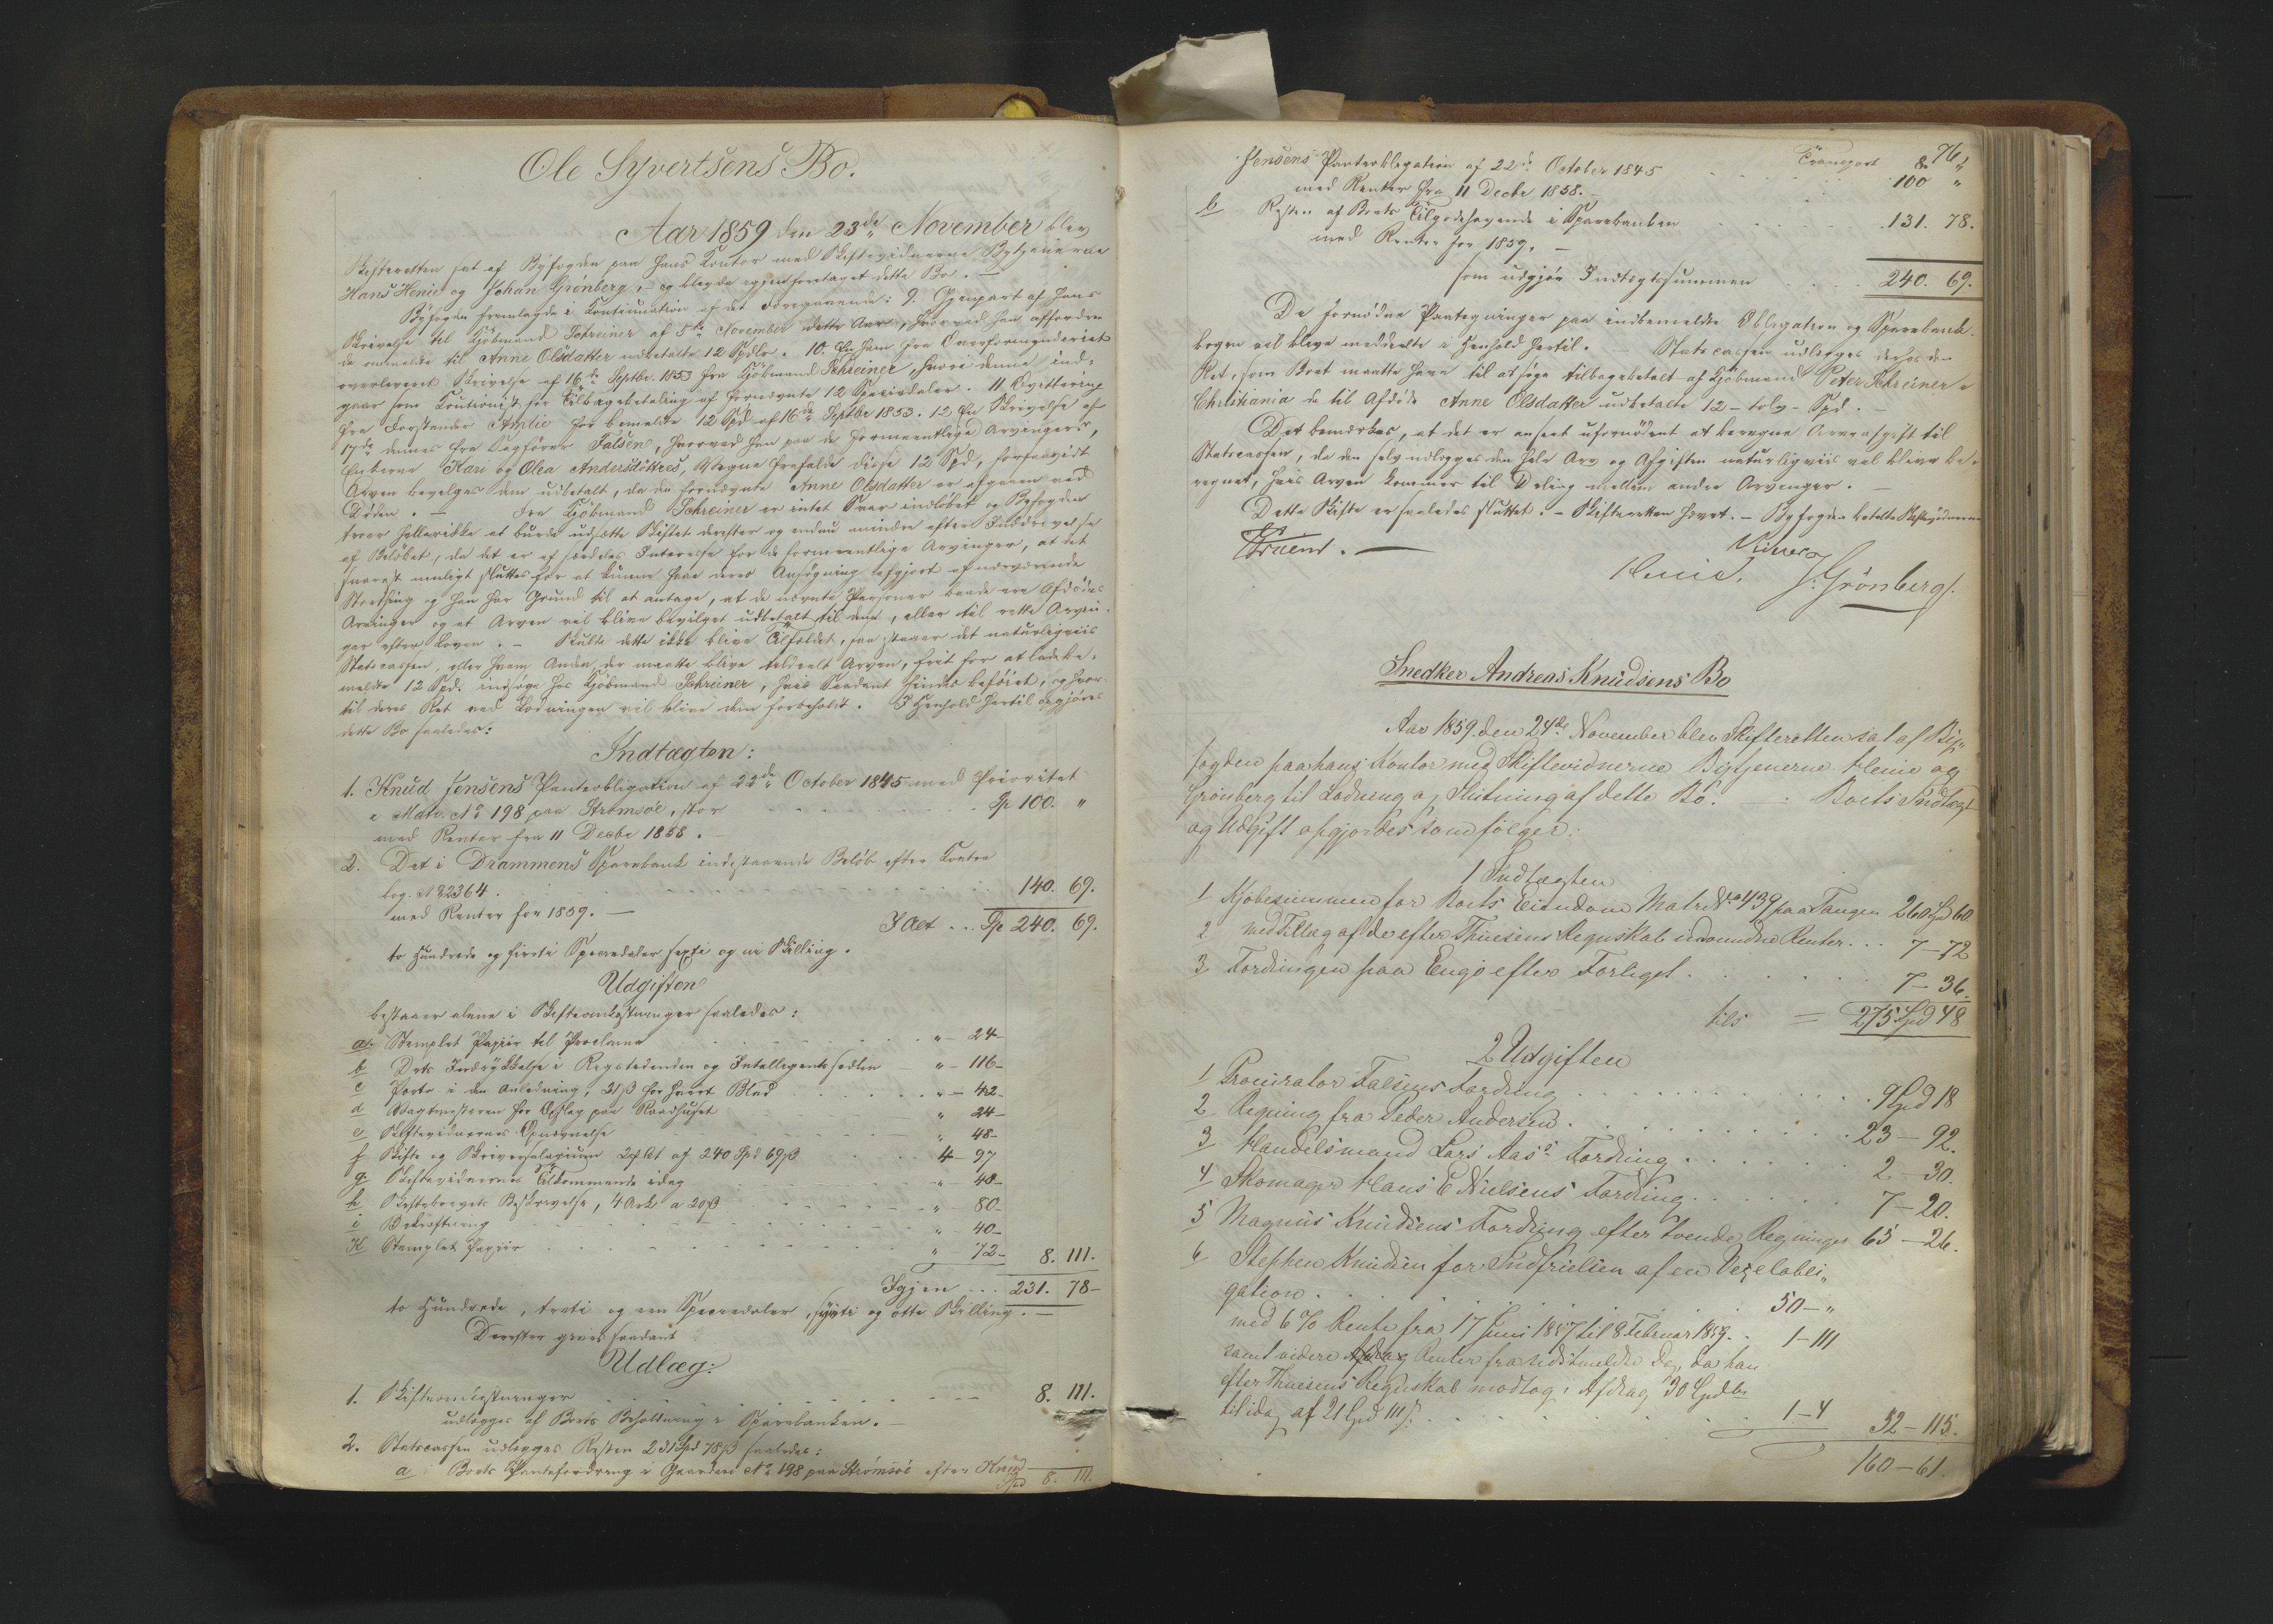 Ole Syvertsens Bo.
Aar 1859 den 23de November blev
Skifteretten sat af Byfogden paa hans Kontor med Skiftevidnerne Bytjenerne
Hans Henie og Johan Grönberg, og blev da igjen foretaget dette Bo. —
Byfogden fremlagde i Kontinuation af det Foregaaende: 9. Gjenpart af hans
Skrivelse til Kjöbmand Schreiner af 5te November dette Aar, hvorved han affordres
de ommeldte til Anne Olsdatter udbetalte 12 Spdlr. 10. En ham fra Overformynderiet
overleveret Skrivelse af 16de Septbr. 1853 fra Kjöbmand Schreiner, hvori denne ind-
gaar som Kautionist for Tilbagebetaling af fornævnte 12 Speciedaler. 11. Qvittering
fra Forstander Amlie for bemeldte 12 Spd af 16de Septbr 1853. 12. En Skrivelse af
17de dennes fra Sagförer Falsen, hvorved han paa de formeentlige Arvingers,
Enkerne Kari og Olea Andersdöttres, Vegne frafalder disse 12 Spd, forsaavidt
Arven bevilges dem udbetalt, da den fornævnte Anne Olsdatter er afgaaen ved
Döden. — Fra Kjöbmand Schreiner er intet Svar indlöbet og Byfogden
troer hellerikke at burde udsætte Skiftet derefter og endnu mindre efter Inddrivelse
af Belöbet, da det er af særdeles Interesse for de formeentlige Arvinger, at det
snarest muligt sluttes for at kunne faae deres Ansögning afgjort af nærværende
Storthing og han har Grund til at antage, at de nævnte Personer baade ere Afdödes
Arvinger og at Arven vil blive bevilget udbetalt til dem, eller til rette Arvin-
ger efter Loven. — Skulde dette ikke blive Tilfældet, saa staaer det naturligviis
Statscassen, eller hvem Anden der maatte blive tildeelt Arven, frit for at lade be-
meldte 12 Spd. indsöge hos Kjöbmand Schreiner, hvis Saadant findes beföiet, og hvor-
til deres Ret ved Lodningen vil blive dem forbeholdt. I Henhold hertil opgjöres
dette Bo saaledes:
Indtægten:
1. Knud Jensens Panteobligation af 22de October 1845 med Prioritet
i Matr. No 198 paa Strömsöe, stor . . . Sp 100. "
med Renter fra 11 Decbr 1858. —
2. Det i Drammens Sparebank indestaaende Belöb efter Contra
bog No 2364. . . . 140. 69.
med Renter for 1859. —
I Alt . . . Sp 240. 69.
to Hundrede og firti Speciedaler sexti og ni Skilling.
Udgiften
bestaaer alene i Skifteomkostninger saaledes:
a. Stemplet Papiir til Proclama . . . " - 24 -
b Dets Indrykkelse i Rigstidenden og Intelligentssedlen - " - 116 -
c Porto i den Anledning, 21 β for hvert Blad . . . " - 42 -
d Vagtmesteren for Opslag paa Raadhuset . . . " 24 -
e Skiftevidnernes Opnævnelse . . . " 48 -
f Skifte og Skriversalarium 2 pCt af 240 Spd 69 β . . . 4 - 97
g. Skiftevidnernes Tilkommende idag . . . " 48 -
h Skiftebrevets Beskrivelse, 4 Ark a 20 β . . . " - 80 -
i Bekræftning . . . " - 40 -
K Stemplet Papiir . . . " 72 - 8. 111.
Igjen . . . 231. 78 -
to Hundrede, tredti og een Speciedaler, sytti og otte Skilling. —
Derefter gives saadant
Udlæg:
1. Skifteomkostninger . . . 8. 111.
udlægges af Boets Beholdning i Sparebanken. —
2. Statscassen udlægges Resten 231 Spd 78 β saaledes:
a Boets Pantefordring i Gaarden No 198 paa Strömsöe efter Knud
Spd 8. 111.
76
Transport 8. "
Jensens Panteobligation af 22de October 1845 . . . 100 "
med Renter fra 11 Decbr 1858. —
b Resten af Boets Tilgodehavende i Sparebanken . . . 131. 78.
med Renter for 1859. —
som udgjör Indtægtssummen . . . 240. 69.
De fornödne Paategninger paa indbemeldte Obligation og Sparebank-
bogen vil blive meddeelte i Henhold hertil. — Statscassen udlægges derhos den
Ret, som Boet maatte have til at söge tilbagebetalt af Kjöbmand Peter Schreiner i
Christiania de til Afdöde Anne Olsdatter udbetalte 12 - tolv - Spd. —
Det bemærkes, at det er anseet ufornödent at beregne Arveafgift til
Statscassen, da den selv udlægges den hele Arv og Afgiften naturligviis vil blive be-
regnet, hvis Arven kommer til Deling mellem andre Arvinger. —
Dette Skifte er saaledes sluttet. — Skifteretten hævet. — Byfogden betalte Skiftevidnerne
Vidner
Henie. J. Grönberg.
Snedker Andreas Knudsens Bo
Aar 1859 den 24de November blev Skifteretten sat af By-
fogden paa hans Kontor med Skiftevidnerne Bytjenerne Henie og
Grönberg til Lodning og Slutning af dette Bo. — Boets Indtægt
og Udgift opgjordes som fölger:
1 Indtægten
1 Kjöbesummen for Boets Eiendom Matr No 439 paa Tangen 260 Spd 60
2 med Tillæg af de efter Thuesens Regnskab indvundne Renter . . . 7 - 72
3 Fordringen paa Engo efter Forliget . . . 7 - 36.
tils = 275 Spd 48
2 Udgiften
1 Procurator Falsens Fordring . . . 9 Spd 18
2 Regning fra Peder Andersen . . . 23 - 92.
3 Handelsmand Lars Aas's Fordring . . . 2 - 30.
4 Skomager Hans E Nielsens Fordring . . . 7 - 20.
5 Magnus Knudsens Fordring efter tvende Regninger 65 - 26.
6 Stephen Knudsen for Indfrielsen af en Vexelobli-
gation . . . 50 - "
med 6 % Rente fra 17 Juni 1857 til 8 Februar 1859 . . 1 - 111
samt videre Renter fra sidstmeldte Dag, da han
efter Thuesens Regnskab modtog i Afdrag 30 Spdlr
til idag af 21 Spd 111 β. . . . 1 - 4 52 - 115.
160 - 61.